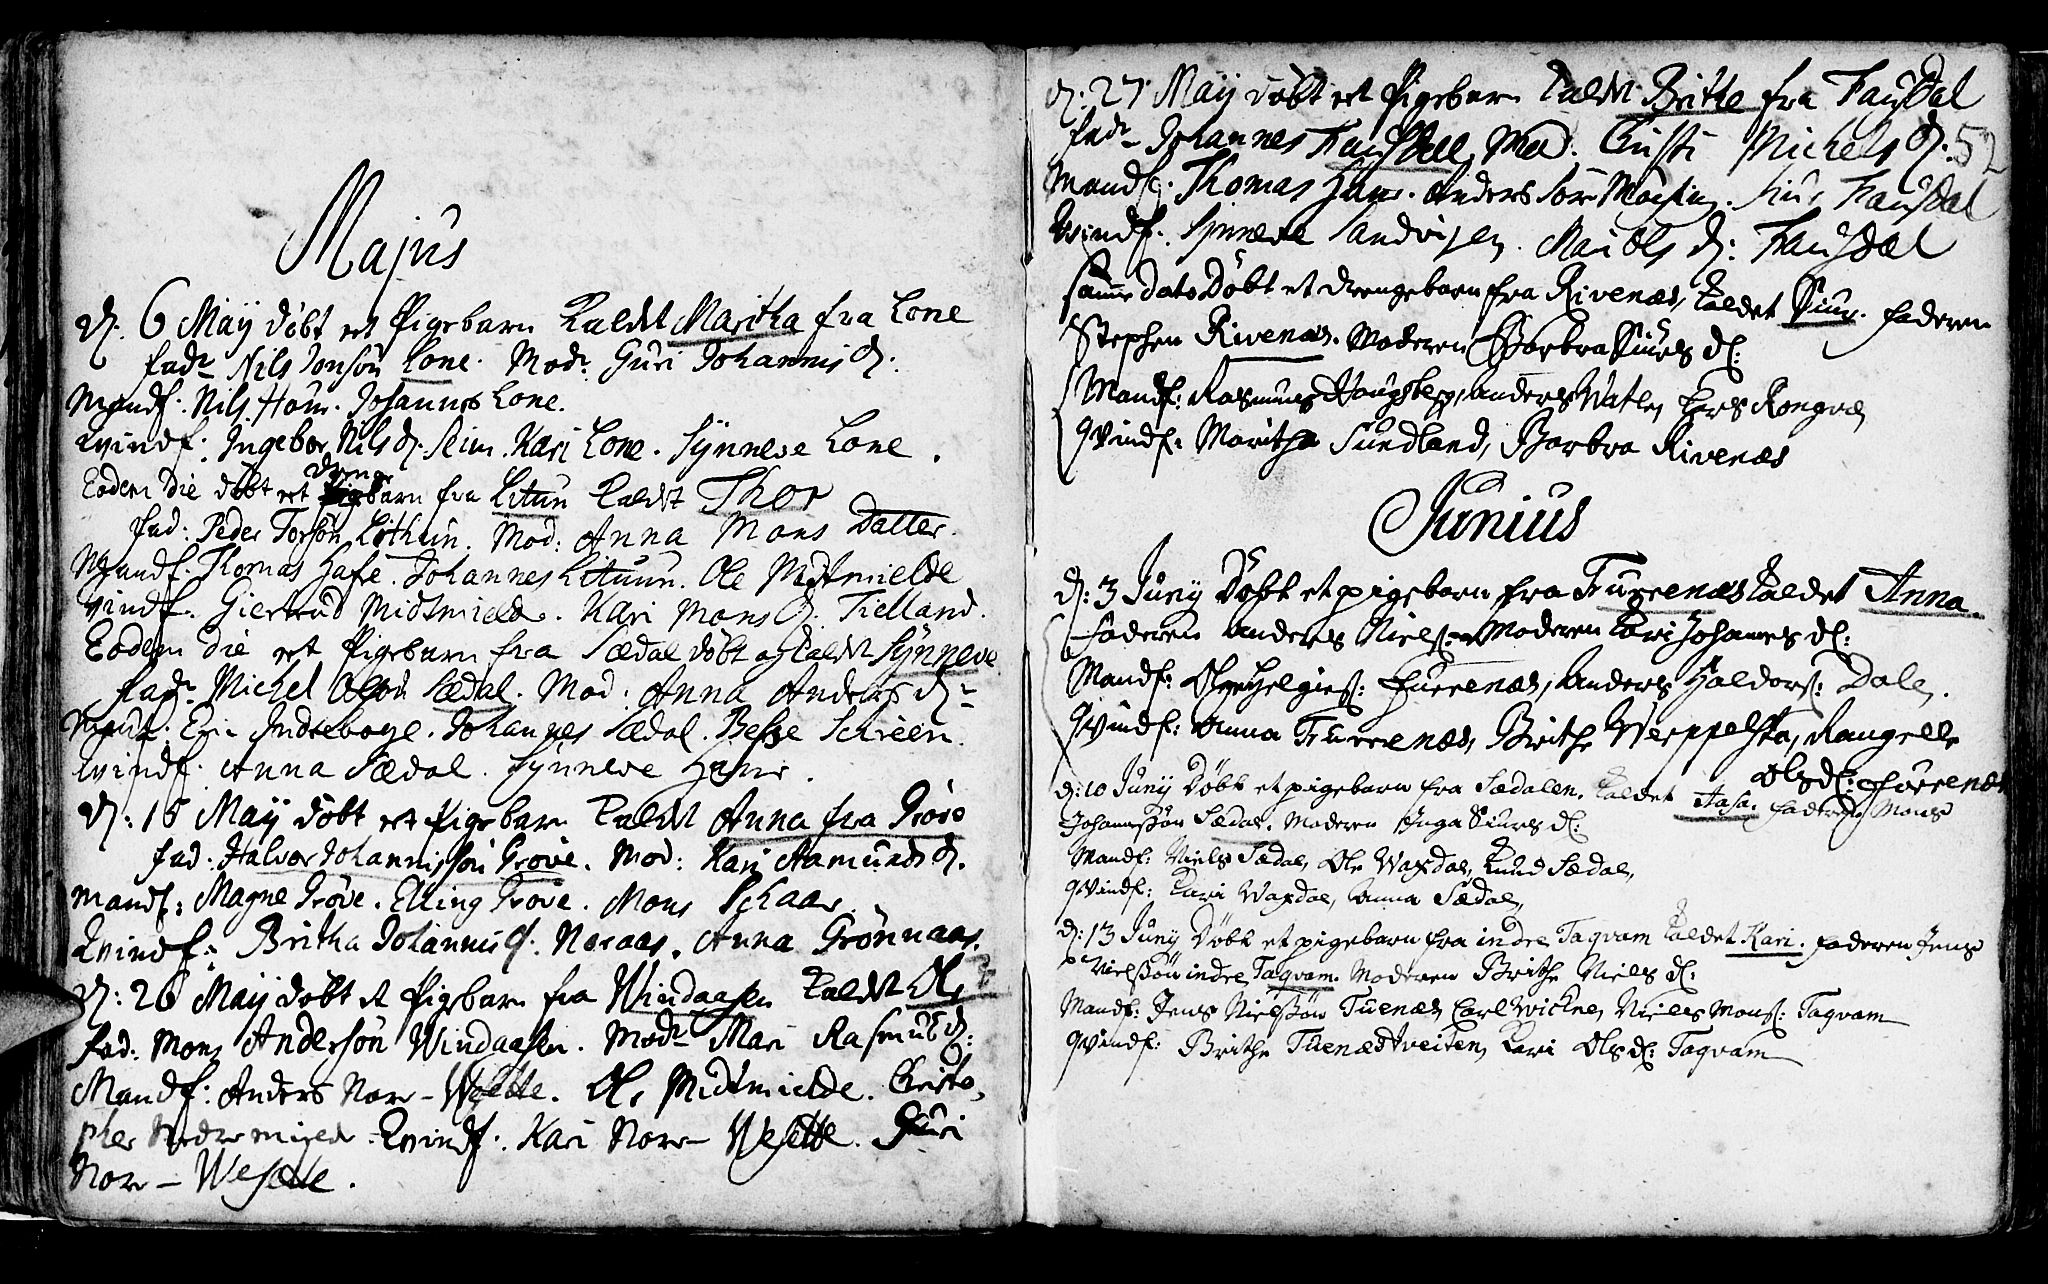 Majus
d. 6 Maÿ døbt eet Pigebarn Kaldet Maritha fra Lone
fadr Nils Jonsøn Lone. Modr Guri Johannis d.
Mandf. Nils Ham. Johannes Lone.
Kvindf. Ingebor Nils d. Seim. Kari Lone. Synneve Lone.
Eodem Die døbt eet Drengebarn fra Litun Kaldet Thor
fad: Peder Torsøn Lithun. Mod: Anna Mons Datter.
Mandf. Thomas Hafe. Johannes Lituun. Ole Midtmielde
Kvindf. Giertrud Midtmielde. Kari Mons d. Tielland.
Eodem Die eet Pigebarn fra Sædal døbt og Kaldet Synneve
fadr Michel Olson Sædal. Mod: Anna Anders dr
Mand: Eric Indrebøye. Johannes Sædal. Besse Schreen.
Kvindf. Anna Sædal. Synneve Ham.
d: 16 Maÿ døbt eet Pigebarn Kaldet Anna fra Grøve
fad: Halvor Johannissøn Grøve. Mod: Kari Aamunds d.
Mandf: Magne Grøve. Elling Grøve. Mons Schaar.
Kvindf: Britha Johannis d. Noraas. Anna Grønnaas.
d: 26 Maÿ døbt et Pigebarn fra Windaasen Kaldet Ol
fad: Mons Andersøn Windaasen. Modr Mari Rasmus d:
Mandf: Anders Nore-Wesette. Ole Midtmielde. Christo,
pher Nedremiede. Kvindf: Kari Nore-Wesette. Guri
Nore-Wesette.
d: 27 Maÿ døbt eet Pigebarn Kaldet Brithe fra Faugdal
fadr Johannes Faugdall Mod. Christi Michels d. 52
Mandf: Thomas Ham. Anders Faugdal
Kvindf: Synneve Sandvigen. Mari Ols d: Faugdal
Samme dato Døbt et drengebarn fra Rivenæs, Kaldet Siur. Faderen
Stephen Rivenæs. Moderen Barbra Siurs d:
Mandf: Rasmus Hougsberg, Anders Watle, Lars Rongve,
Qvindf: Maritha Sundland, Barbra Rivenæs
Junius
d: 3 Juny Døbt et pigebarn fra Furrenæs Kaldet Anna.
Faderen Anders Nielss: Moderen Kari Johannes d:
Mandf: Ole Helgies: Furrenæs, Anders Haldors: Dale,
Qvindf: Anna Furrenæs, Brithe Weppelsta, Rangelle
Ols d: Furrenæs
d: 10 Juny Døbt et pigebarn fra Sædalen, Kaldet Aasa. Faderen Mons
Johannssøn Sædal. Moderen Inga Siurs d:
Mandf: Niels Sædal, Ole Waxdal, Knud Sædal,
Qvindf: Kari Waxdal, Anna Sædal,
d: 13 Juny Døbt et pigebarn fra indre Tagvam Kaldet Kari. Faderen Jens
Nielssøn indre Tagvam. Moderen Brithe Niels d:
Mandf: Jens Nielssøn Tuenæs, Carl Wickne, Niels Mons: Tagvam
Qvindf: Brithe Tuenæstveiten, Kari Ols d: Tagvam